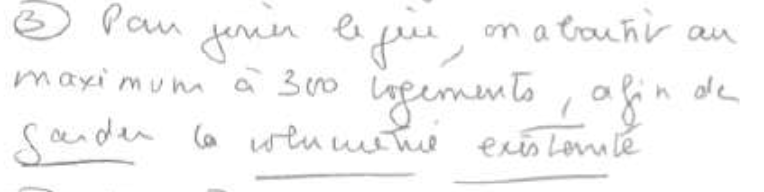 ③ Pour finir le jeu, on aboutir au
maximum à 300 logements, afin de
garder la volumétrie existante